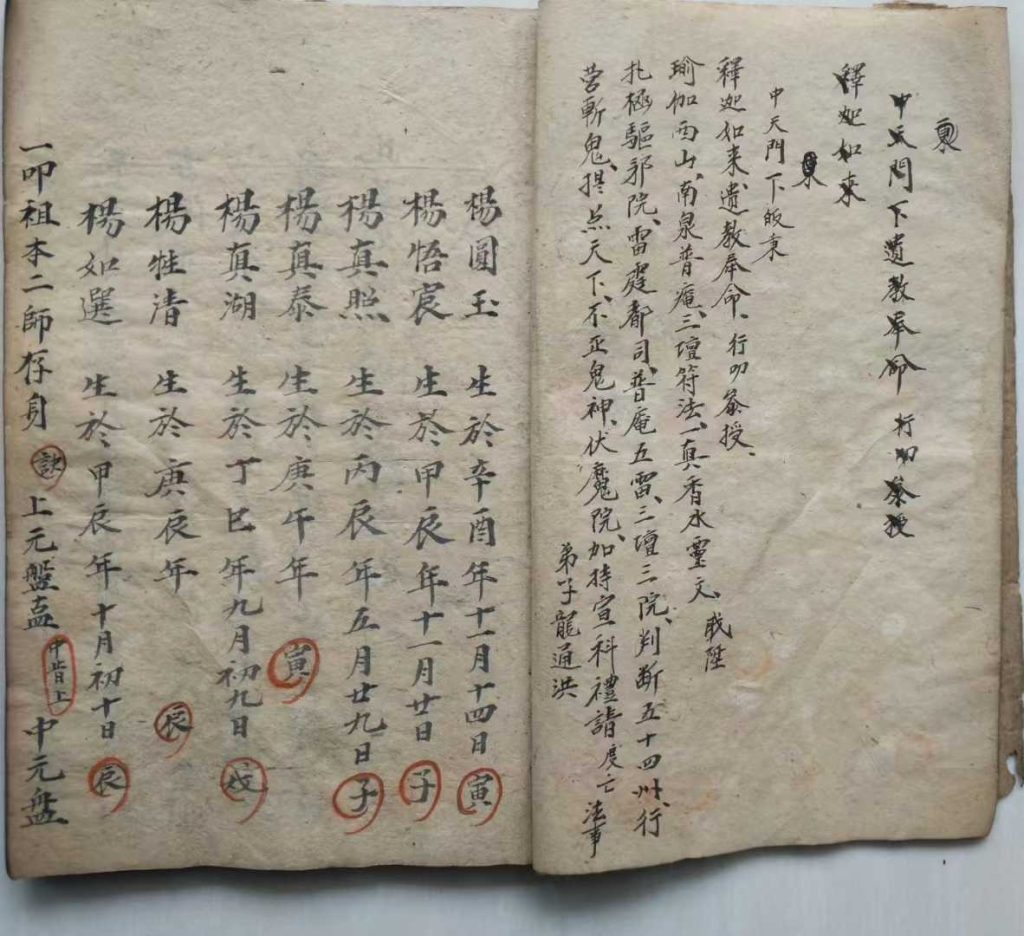 中天門下遺教奉命 行叩叅授
釋迦如來
中天門下皈秉
釋迦如來、遺教奉命、行叩叅授、
瑜伽西山、南泉普庵、三壇符法、一真香水靈文 戒陞
扎極驅邪院、雷霆都司、普庵五雷、三壇三院、判断五十四州、行
营斬鬼、提点天下、不正鬼神、伏魔院、加持宣科禮請度亡法事
弟子龍通洪
楊圓玉 生於辛酉年十一月十四日 寅
楊悟宸 生於甲辰年十一月廿日 子
楊真照 生於丙辰年五月廿九日 子
楊真泰 生於庚午年 寅
楊真湖 生於丁巳年九月初九日 戌
楊性清 生於庚辰年 辰
楊如選 生於甲辰年十月初十日 辰
一叩祖本二師存身 訣 上元盤古 中指上 中元盤